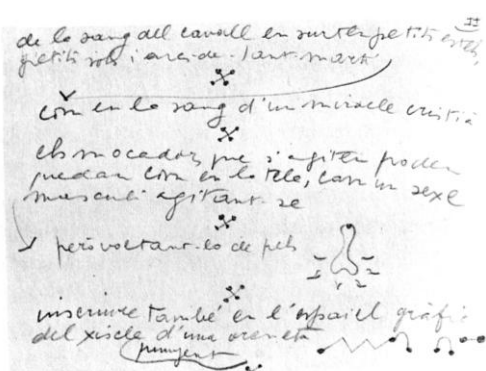 II
de la sang del cavall en surten petits estels,
petits sols i arcs de Sant Martí
com en la sang d'un miracle cristià
els mocadors que s'agiten poden
quedar com en la tela, com un sexe
masculí agitant-se
però voltant-lo de pels
inscriure també en l'espai el gràfic
del xiscle d'una oreneta
punyent